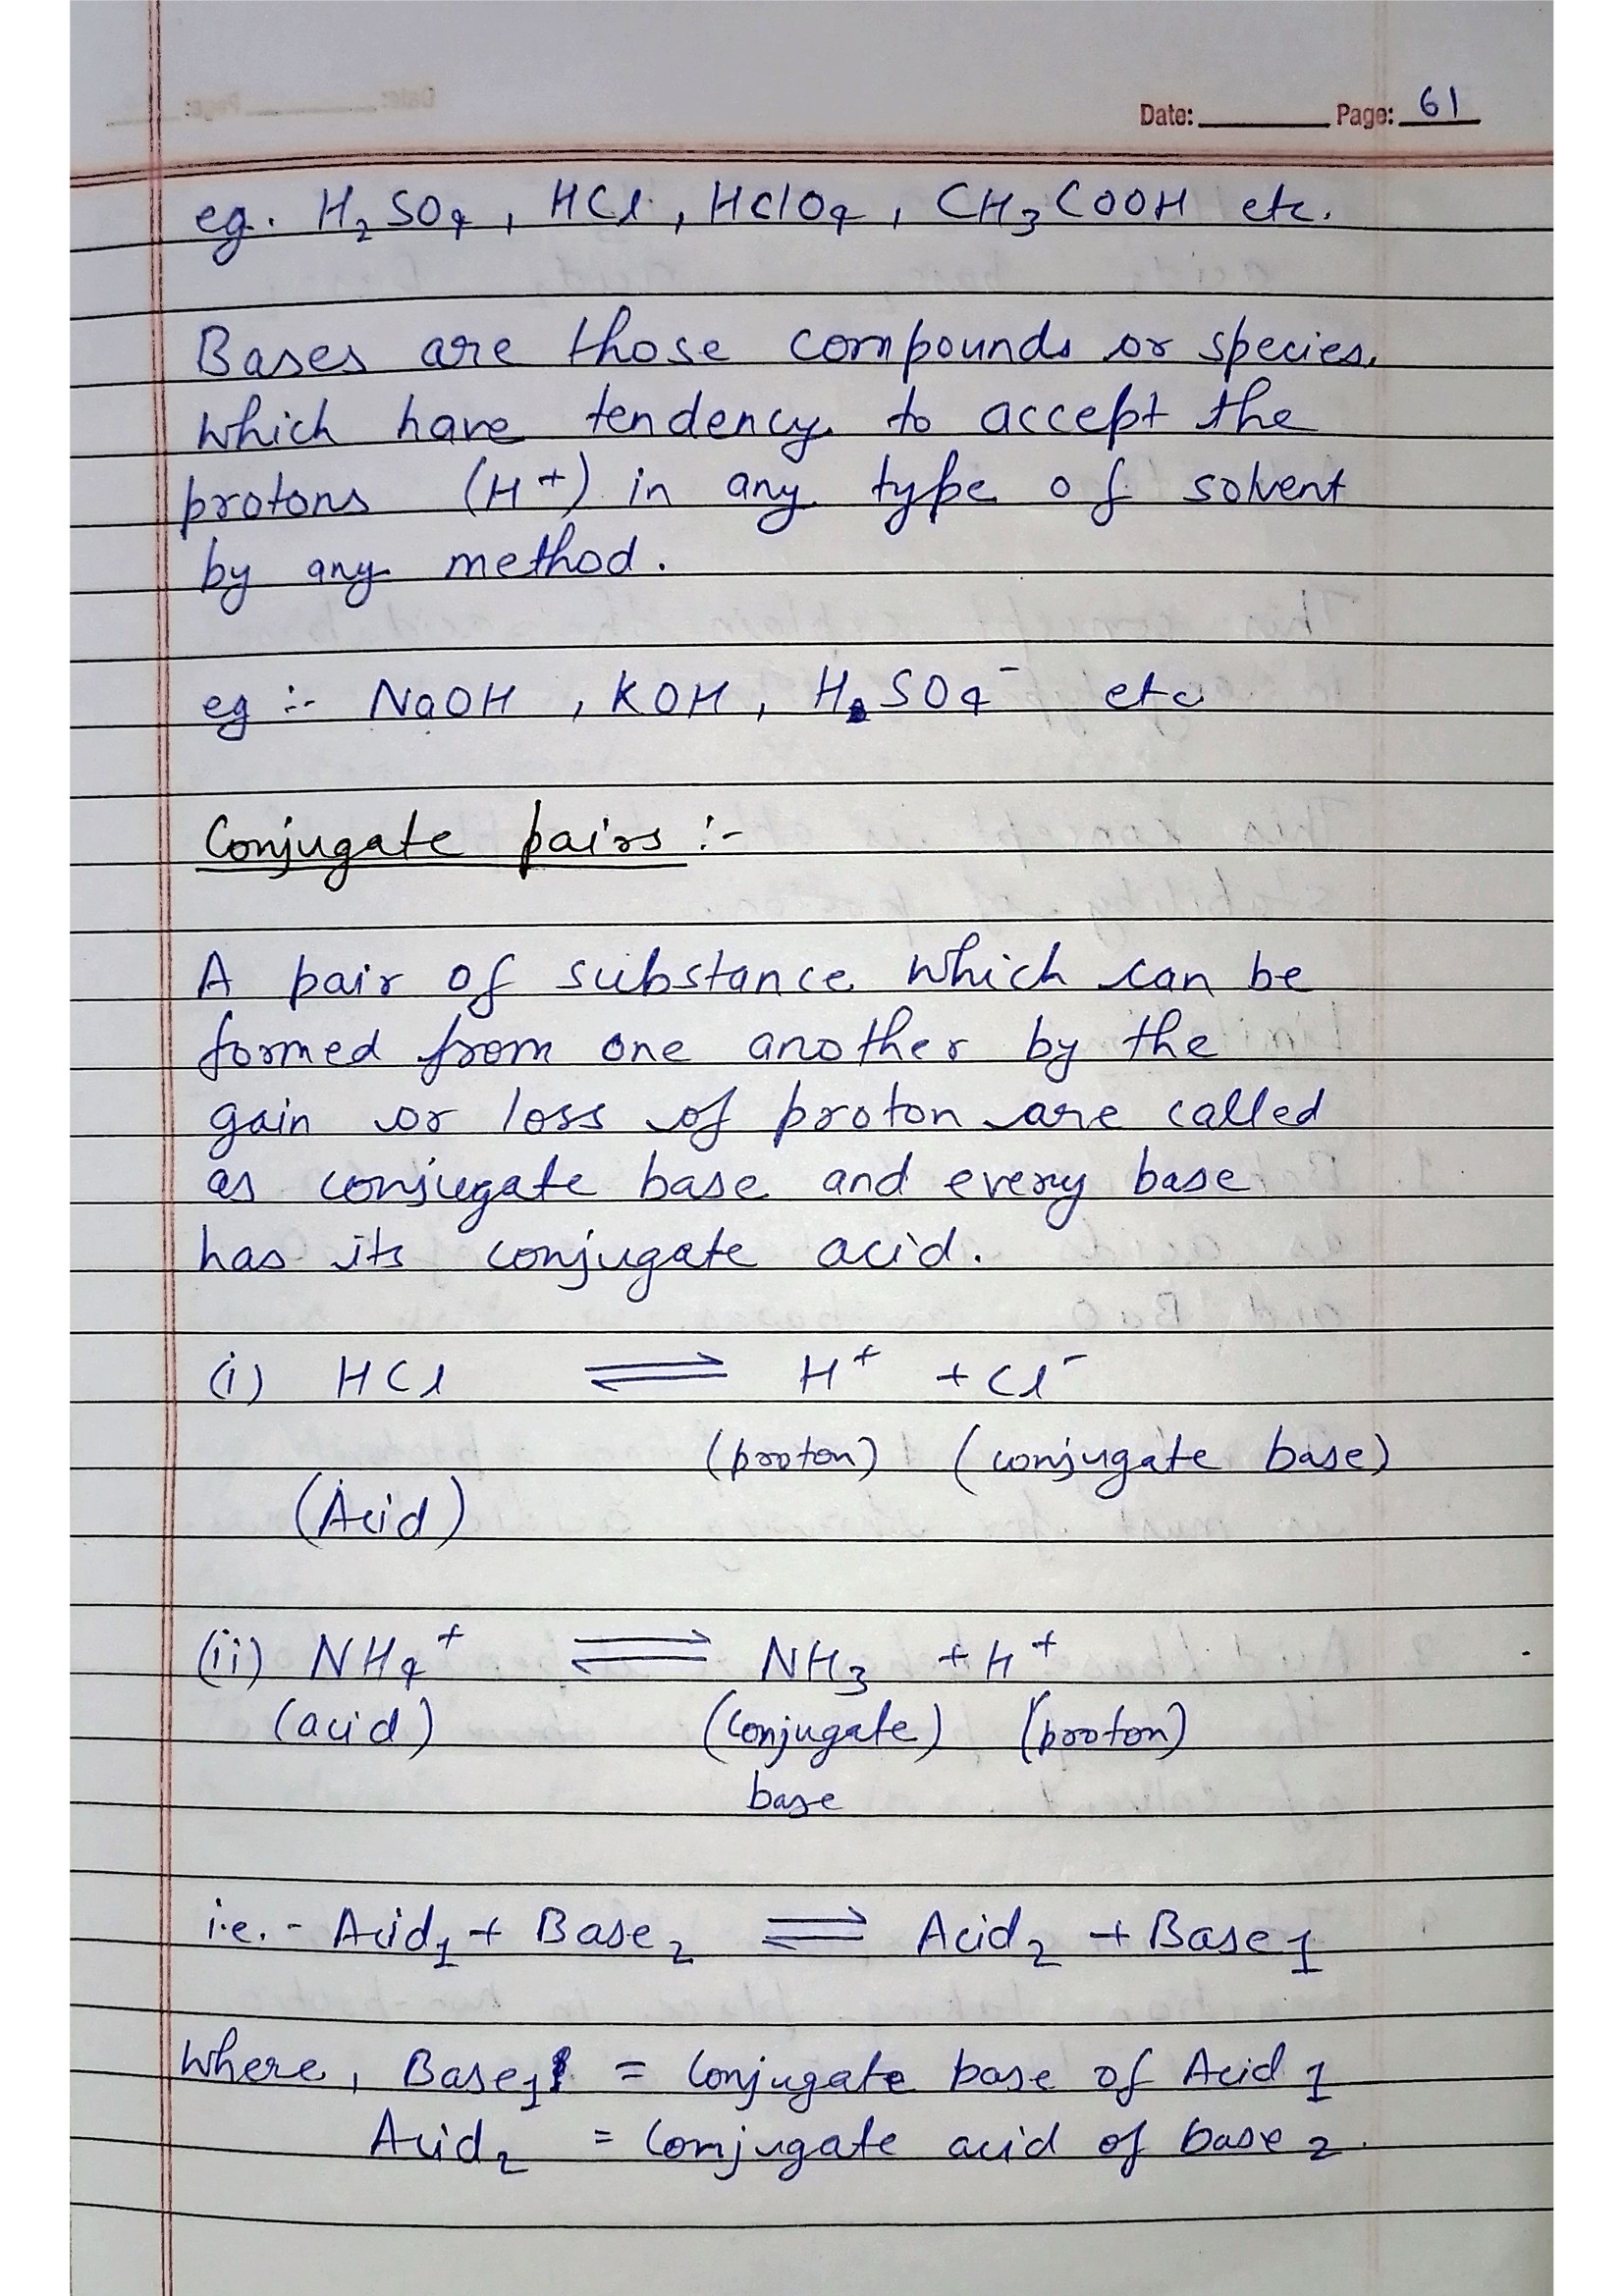 Date: Page: 61
eg. H₂SO₄, HCl, HClO₄, CH₃COOH etc.
Bases are those compounds or species
which have tendency to accept the
protons (H⁺) in any type of solvent
by any method.
eg :- NaOH, KOH, HSO₄⁻ etc
Conjugate pairs :-
A pair of substance which can be
formed from one another by the
gain or loss of proton are called
as conjugate base and every base
has its conjugate acid.
(i) HCl ⇌ H⁺ + Cl⁻
(proton) (conjugate base)
(Acid)
(ii) NH₄⁺ ⇌ NH₃ + H⁺
(acid) (conjugate) (proton)
base
i.e. - Acid₁ + Base₂ ⇌ Acid₂ + Base₁
Where, Base₁ = Conjugate base of Acid 1
Acid₂ = Conjugate acid of base 2.